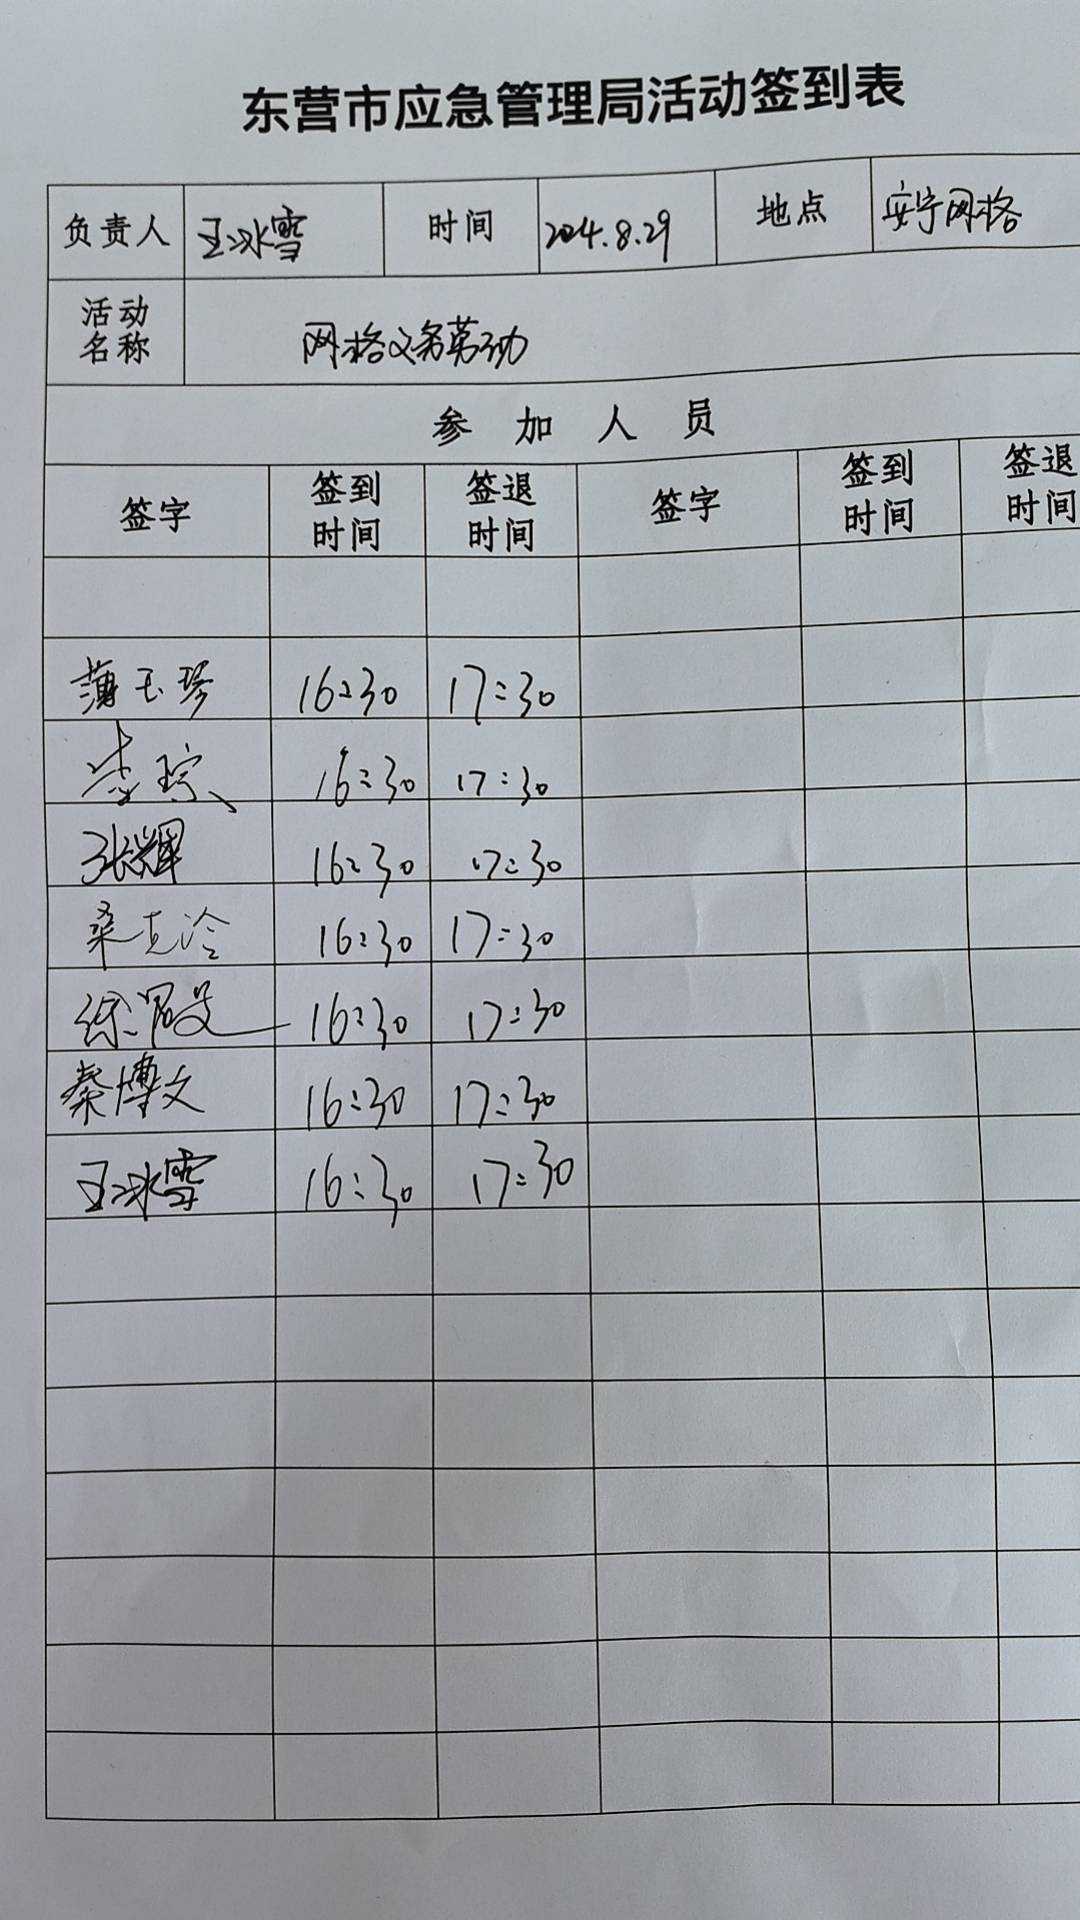 东营市应急管理局活动签到表
负责人 王冰雪 时间 2024.8.29 地点 安宁网格
活动名称 网格义务劳动
参加人员
签字 签到时间 签退时间 签字 签到时间 签退时间
薄玉琴 16:30 17:30
16:30 17:30
张辉 16:30 17:30
桑克冷 16:30 17:30
16:30 17:30
秦博文 16:30 17:30
王冰雪 16:30 17:30